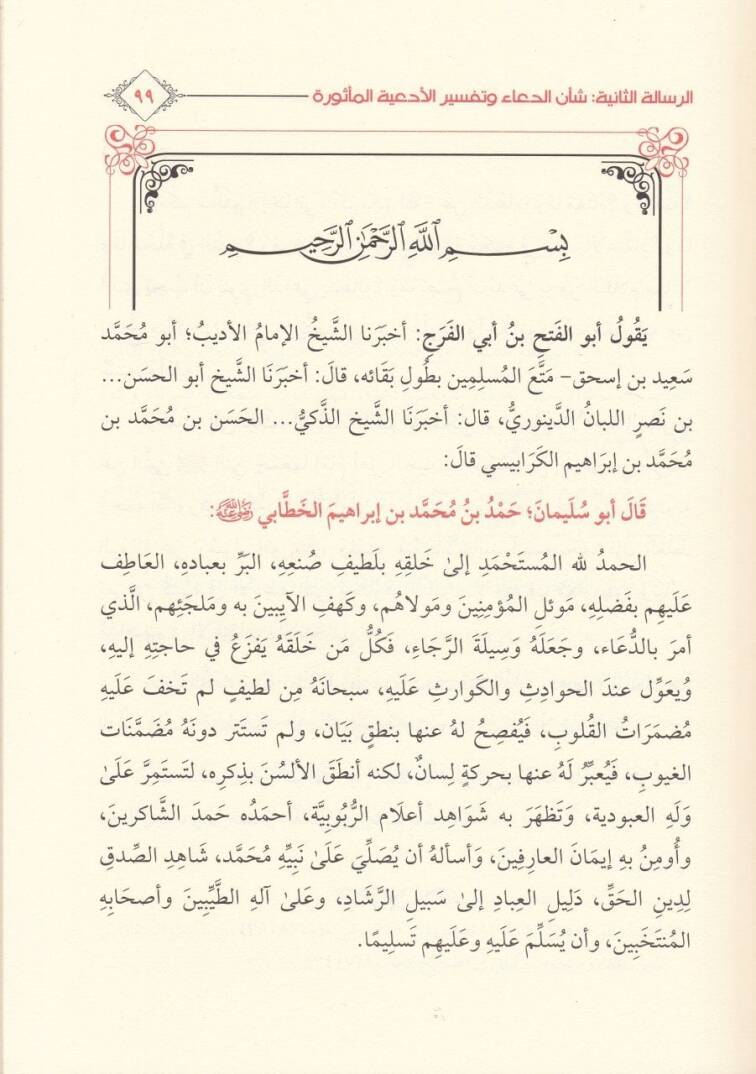 الرسالة الثانية: شأن الدعاء وتفسير الأدعية المأثورة
٩٩
بِسْمِ ٱللَّهِ ٱلرَّحْمَٰنِ ٱلرَّحِيمِ
يَقُولُ أبو الفَتحِ بنُ أبي الفَرَجِ: أخبَرَنا الشَّيخُ الإمامُ الأديبُ؛ أبو مُحَمَّد
سَعِيد بن إسحق- مَتَّعَ المُسلِمِين بطُولِ بَقَائه، قالَ: أخبَرَنَا الشَّيخ أبو الحسَن...
بن نَصرٍ اللبانُ الدَّينوريُّ، قال: أخبَرَنَا الشَّيخ الذَّكيُّ... الحَسَن بن مُحَمَّد بن
مُحَمَّد بن إبرَاهيم الكَرَابيسي قالَ:
قَالَ أبو سُلَيمانَ؛ حَمْدُ بنُ مُحَمَّد بن إبراهيمَ الخَطَّابي رَضِيَ اللَّهُ عَنْهُ:
الحمدُ لله المُستَحْمَدِ إلىٰ خَلقِهِ بلَطيفِ صُنعِهِ، البَرِّ بعبادهِ، العَاطِف
عَلَيهِم بفَضلِهِ، مَوئلِ المُؤمِنِينَ ومَولاهُم، وكَهفِ الآيِبينَ به ومَلجَئِهم، الَّذي
أمرَ بالدُّعَاء، وجعَلَهُ وَسِيلَةَ الرَّجَاءِ، فَكُلُّ مَن خَلَقَهُ يَفزَعُ في حاجتِهِ إليهِ،
وُيعَوِّل عندَ الحوادِثِ والكَوارثِ عَلَيهِ، سبحانَهُ مِن لطيفٍ لم تَخفَ عَلَيهِ
مُضمَرَاتُ القُلوبِ، فَيُفصِحُ لهُ عنها بنطقِ بَيَان، ولم تَستَتر دونَهُ مُضَمَّنَات
الغيوبِ، فَيُعبِّرُ لَهُ عنها بحركةِ لِسانٌ، لكنه أنطَقَ الألسُنَ بذِكرِه، لتَستَمِرَّ عَلَىٰ
وَلَهِ العبودية، وَتَظهَرَ به شَوَاهِد أعلَام الرُّبُوبيَّة، أحمَدُه حَمدَ الشَّاكرينَ،
وأُومِنُ بهِ إيمَانَ العارِفِينَ، وَأسألهُ أن يُصَلِّيَ عَلَىٰ نَبِيِّهِ مُحَمَّد، شَاهِدِ الصِّدقِ
لِدِينِ الحَقِّ، دَلِيلِ العِبادِ إلىٰ سَبيلِ الرَّشَادِ، وعَلىٰ آلهِ الطَّيِّبينَ وأصحَابِهِ
المُنتَخَبِينَ، وأن يُسَلِّمَ عَلَيهِ وعلَيهِم تَسلِيمًا.